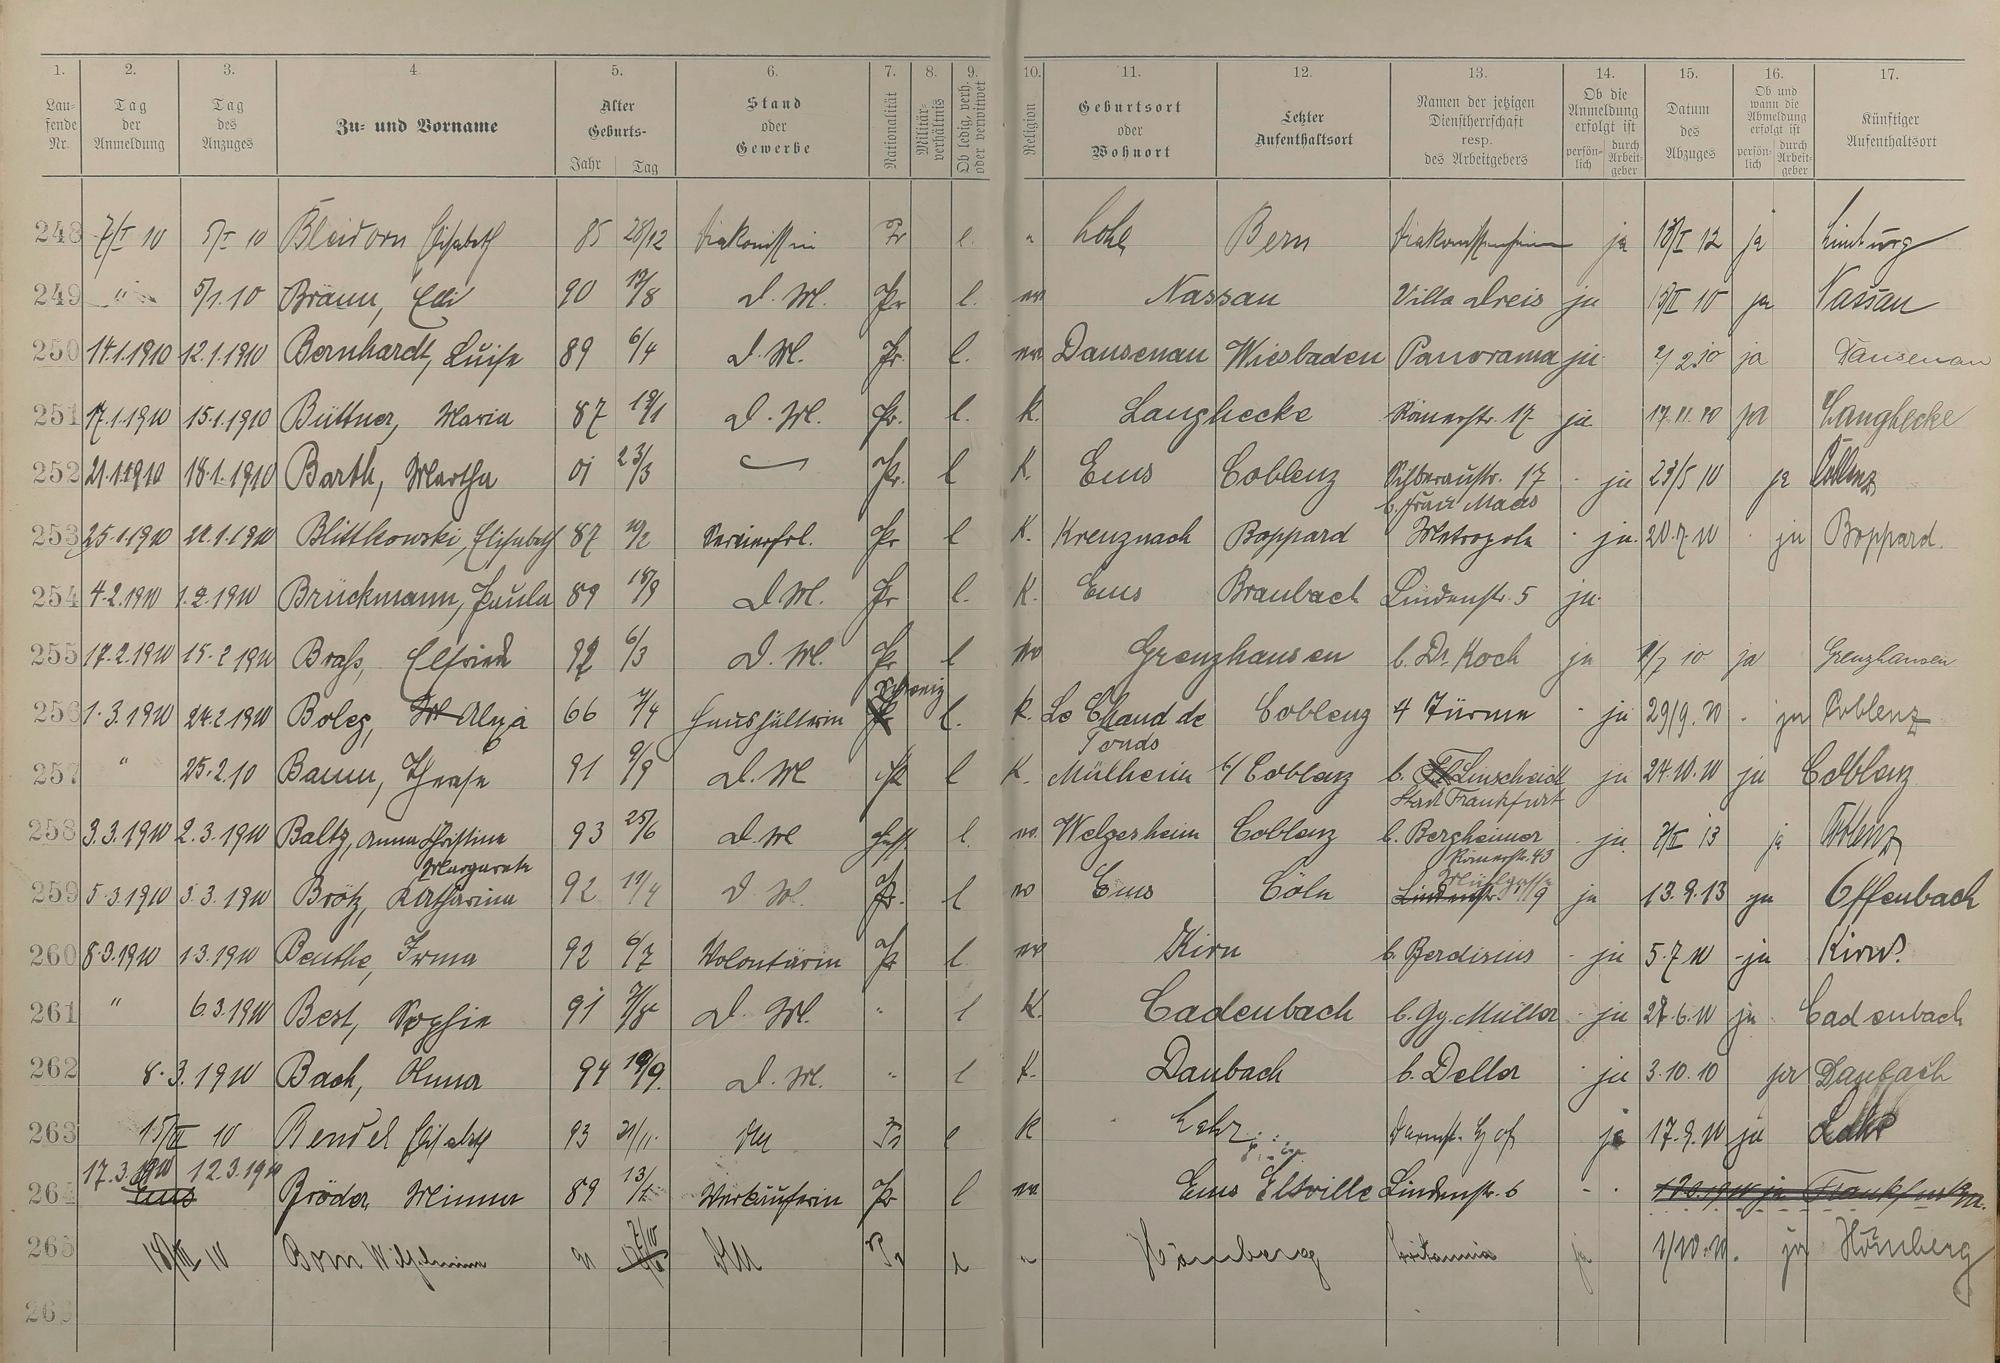 1. 2. 3. 4. 5. 6. 7. 8. 9. 10. 11. 12. 13. 14. 15. 16. 17.
Lau-fende Nr. Tag der Anmeldung Tag des Anzuges Zu- und Vorname Alter Geburts- Jahr Tag Stand oder Gewerbe Nationalität Militär-verhältnis Ob ledig, verh. oder verwittwet Religion Geburtsort oder Wohnort Letzter Aufenthaltsort Namen der jetzigen Dienstherrschaft resp. des Arbeitgebers Ob die Anmeldung erfolgt ist persön-lich durch Arbeit-geber Datum des Abzuges Ob und wann die Abmeldung erfolgt ist persön-lich durch Arbeit-geber Künftiger Aufenthaltsort
248 7/I 10 5/I 10 Bleidorn Elisabeth 85 28/12 Diakonissin Pr l. " Bern ja 13/I 12 ja Limburg
249 " 5/1.10 Braun, Elli 90 19/8 D. M. Pr l. ev Nassau Villa Dreis ja 13/II 10 ja Nassau
250 14.1.1910 12.1.1910 Bernhardt, Luise 89 6/4 D. M. Pr. l. ev. Dausenau Wiesbaden Panorama ja 2/2 10 ja Dausenau
251 17.1.1910 15.1.1910 Büttner, Maria 87 19/1 D. M. Pr. l. K. Langhecke Römerstr. 17 ja 17.11.10 ja Langhecke
252 21.1.1910 18.1.1910 Barth, Martha 01 23/3 Pr. l K. Ems Coblenz Silberaustr. 17 ja 23/5 10 ja Coblenz
b. Frau Maas
253 25.1.1910 22.1.1910 Blittkowski, Elisabeth 87 10/2 Servierfrl. Pr l K. Kreuznach Boppard Metropole ja. 20.7.10 ja Boppard.
254 4.2.1910 1.2.1910 Brückmann, Paula 89 18/9 D. M. Pr l. K. Ems Braubach Lindenstr. 5 ja.
255 17.2.1910 15.2 1910 Braß, Elfried 92 6/3 D. M. Pr l ev Grenzhausen b. Dr. Koch ja 1/7 10 ja Grenzhausen
Schweiz
256 1.3.1910 24.2.1910 Bolez, Alexa 66 7/4 Haushälterin Pr l. K. Le Chaud de Coblenz 4 Türme ja 29/9.10 ja Coblenz
Fonds
257 " 25.2.10 Baum, Therese 91 9/9 D. M Pr l K. Mülheim b/ Coblenz b. Linscheid ja 24.10.10 ja Coblenz
Stadt Frankfurt
258 3.3.1910 2.3.1910 Baltz, Anna Christine 93 25/6 D. M Hess. l. ev. Welgesheim Coblenz b. Bergheimer ja 7/II 13 ja Coblenz
Margarete Römerstr. 43
259 5.3.1910 3.3.1910 Brötz, Katharina 92 19/4 D. M. Pr. l ev Ems Cöln Lindenstr. 9 ja 13.9.13 ja Offenbach
260 8.3.1910 1.3.1910 Benthe, Irma 92 6/7 Volontärin Pr l. ev Kirn b. Berdisius ja 5.7 10 ja Kirn
261 " 6.3.1910 Best, Sophie 91 7/8 D. M. " l K. Cadenbach b. Gg. Müller ja 28.6.10 ja Cadenbach
262 8.3.1910 Bach, Anna 94 19/9. D. M. " l K. Daubach b. Deller ja 3.10.10 ja Daubach
263 15/III 10 Bendel Elisabeth 93 21/11. DM Pr l K Lehr Darmst. Hof ja 17.9.10 ja Lehr
17.3.1910 12.3.1910
264 Ems Bröder, Minna 89 13/1 Verkäuferin Pr l ev. Ems Eltville Lindenstr. 6 17.3.1910 ja Frankfurt
265 18/III 10 Born Wilhelmine 91 7/10 DM Pr l " Hömberg Britannia ja 1/10.10. ja Hömberg
266